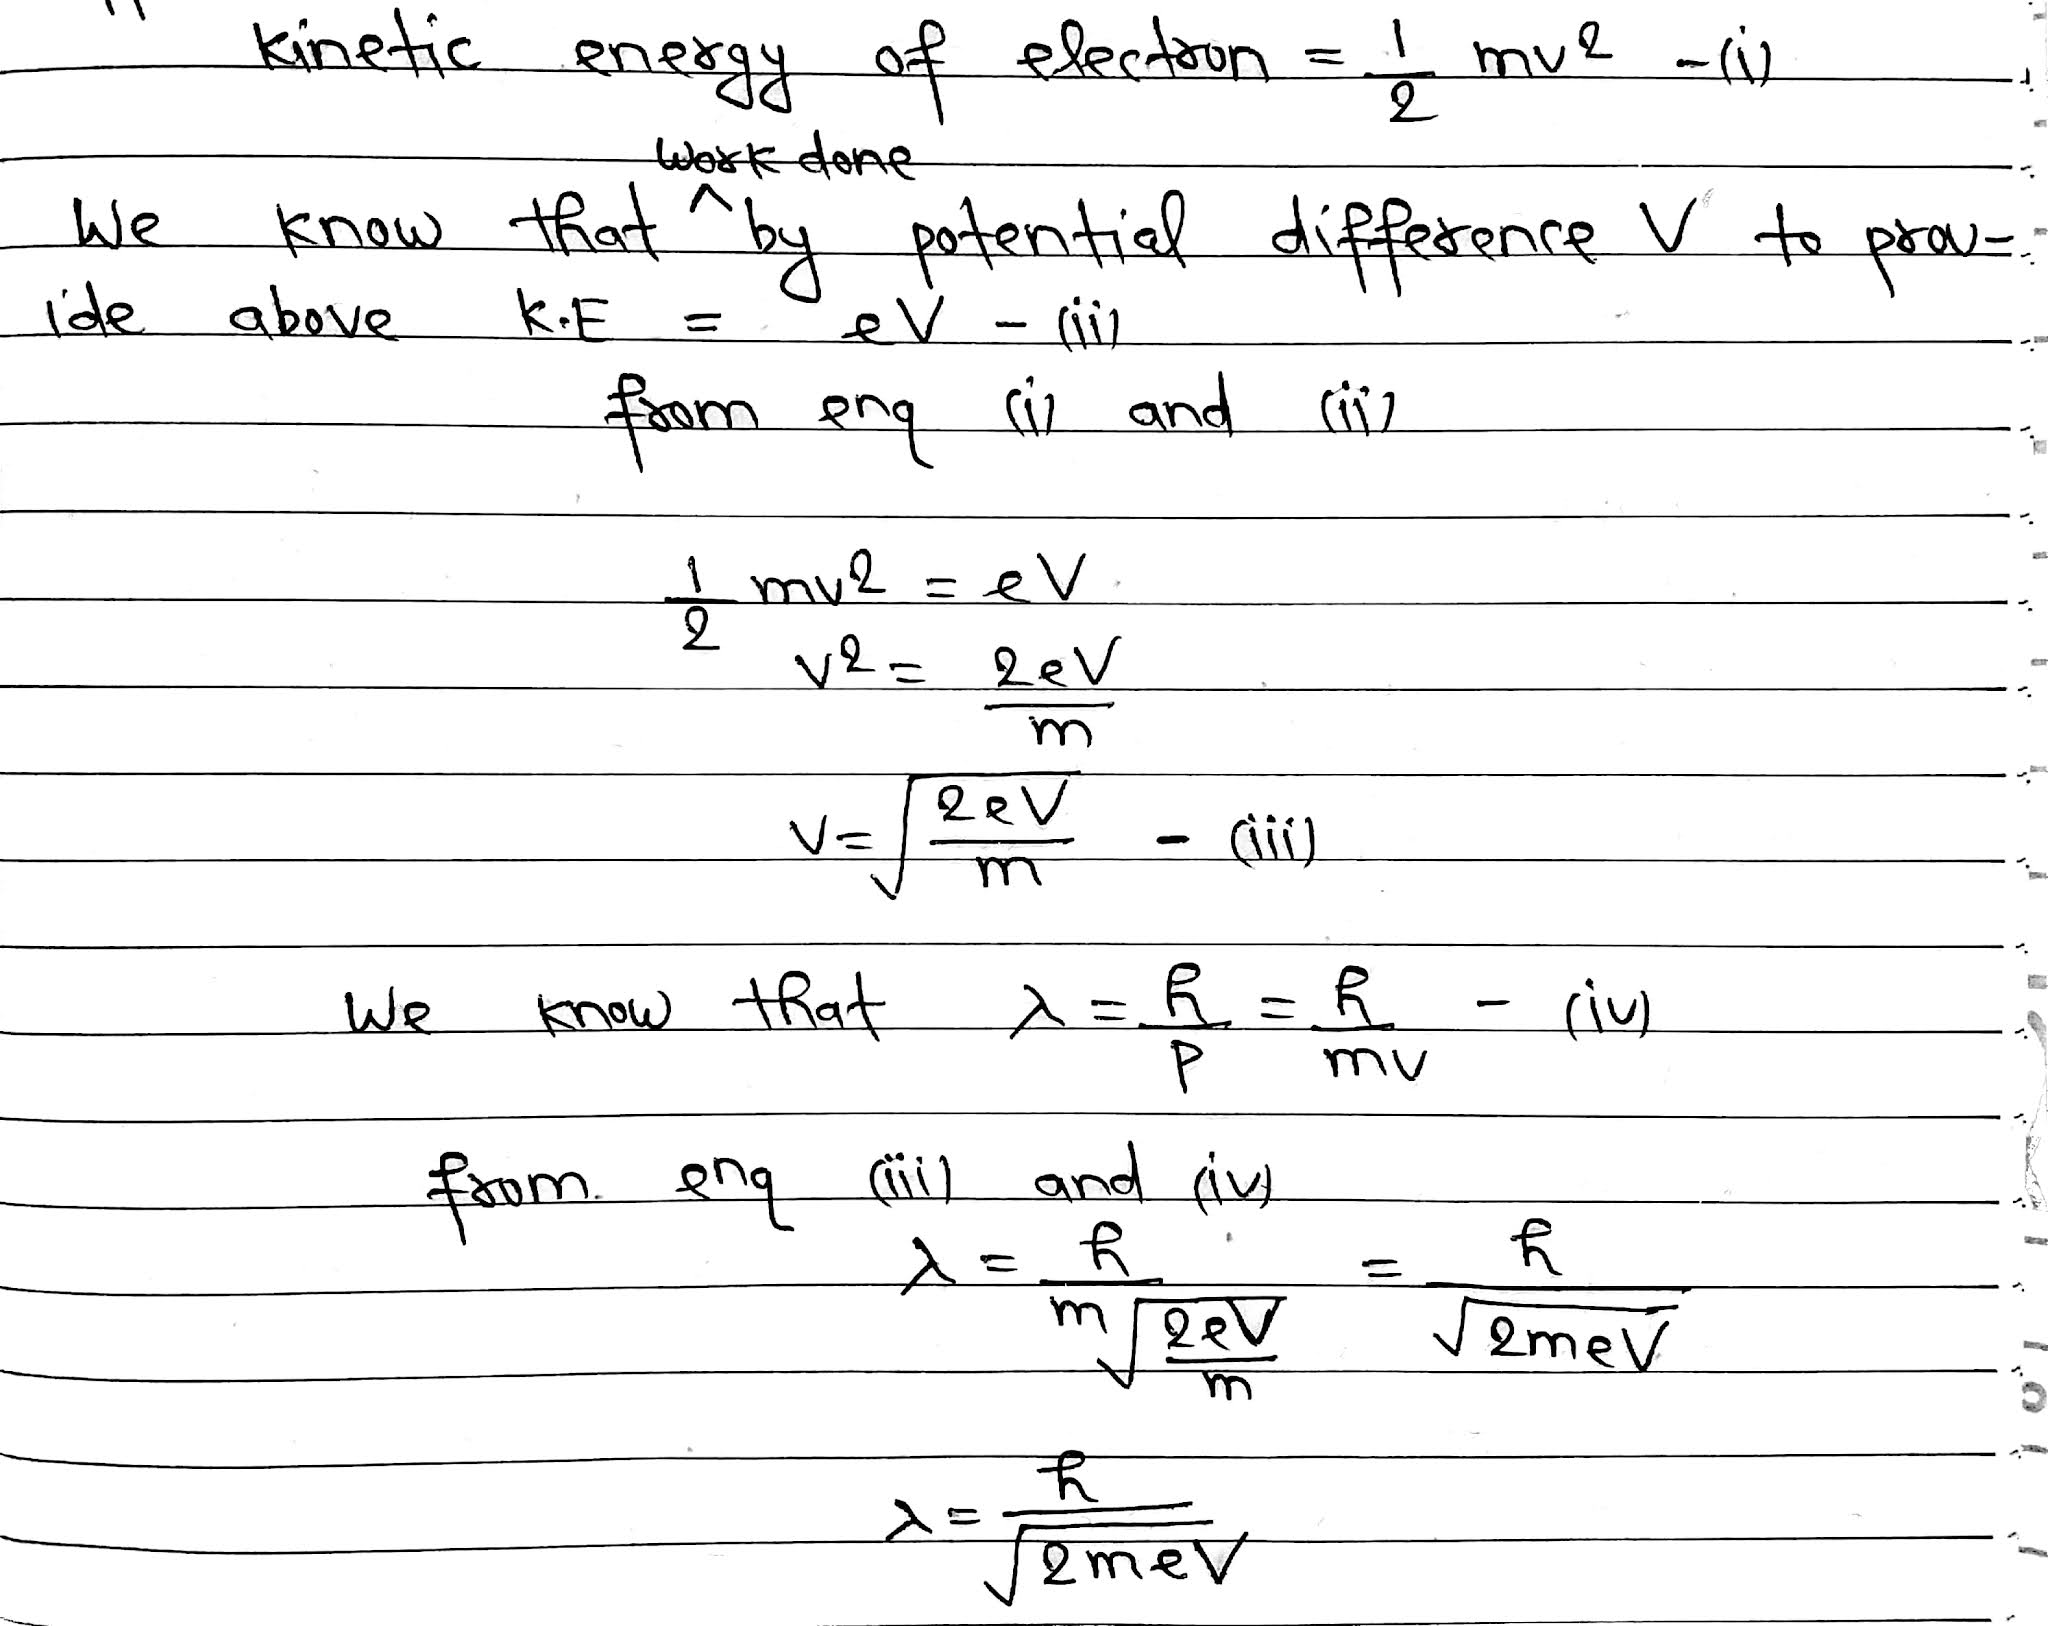 Kinetic energy of electron = 1/2 mv² - (i)
work done
We know that ^ by potential difference V to prov-
ide above K.E = eV - (ii)
from enq (i) and (ii)
1/2 mv² = eV
v² = 2eV/m
v = √(2eV/m) - (iii)
We know that λ = h/p = h/mv - (iv)
from enq (iii) and (iv)
λ = h/(m√(2eV/m)) = h/√(2meV)
λ = h/√(2meV)